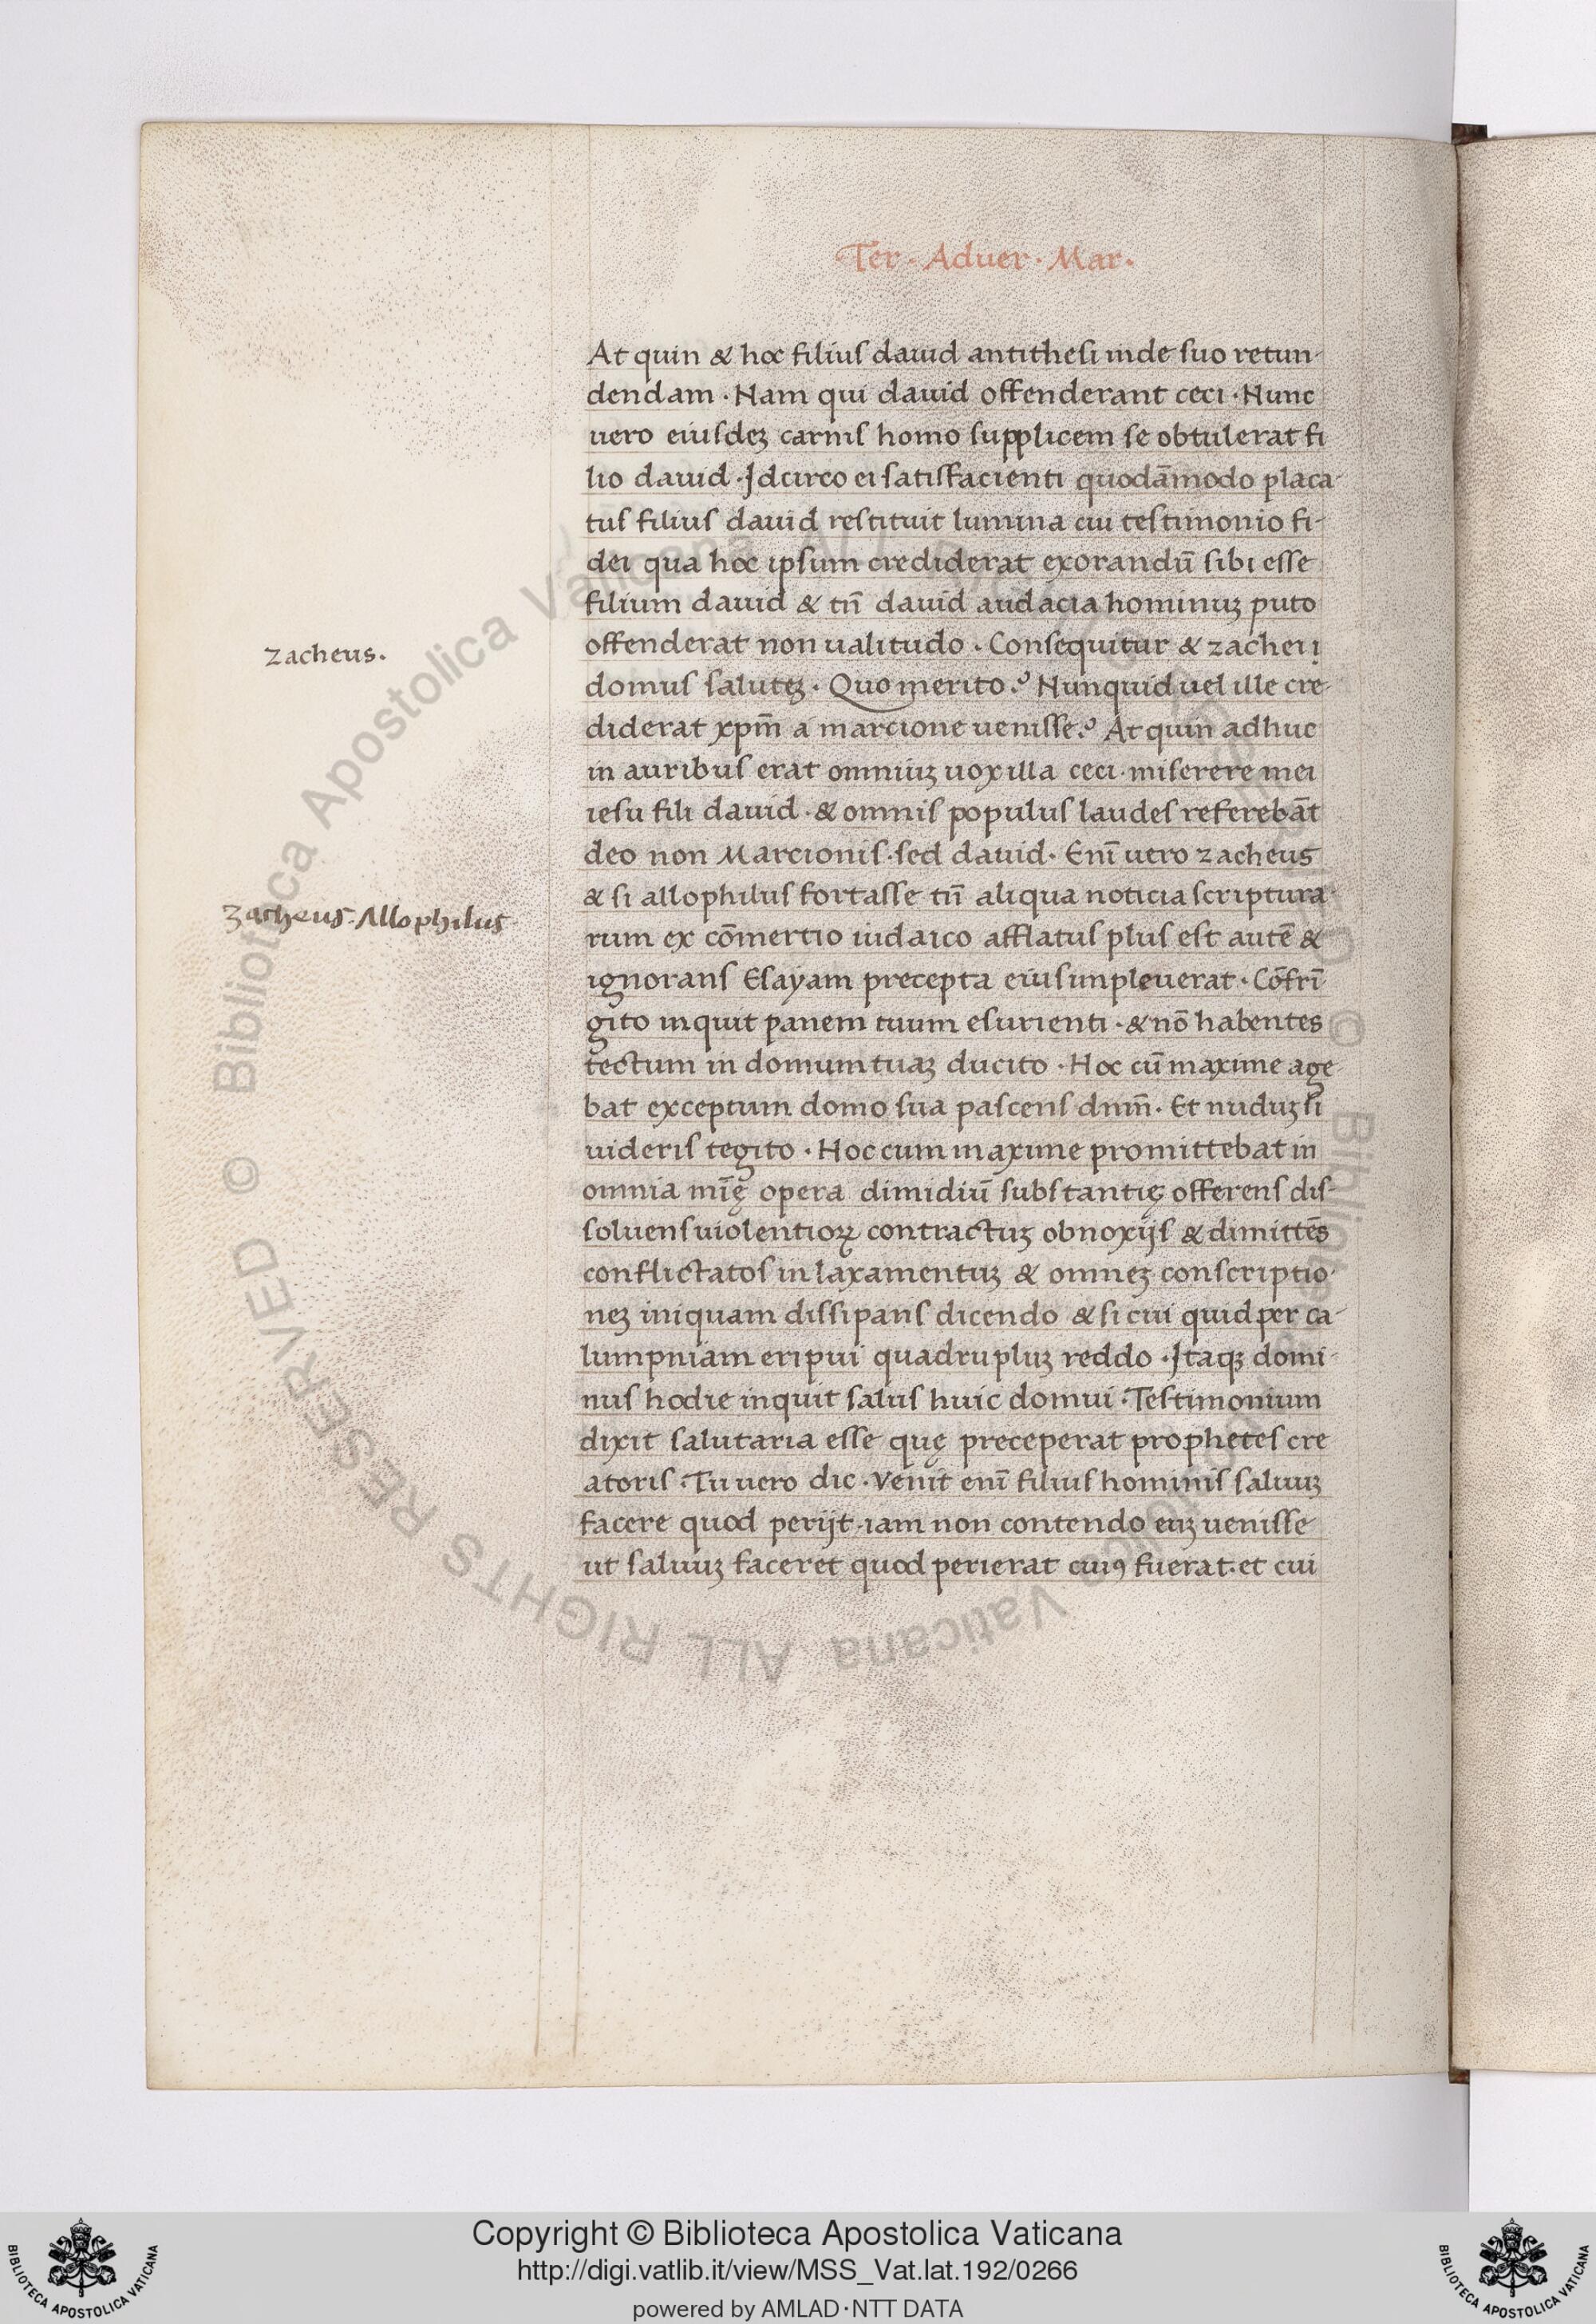 Ter · Aduer · Mar ·
At quin & hoc filius dauid antithesi inde suo retun-
dendam · Nam qui dauid offenderant ceci · Nunc
uero eiusdeꝫ carnis homo supplicem se obtulerat fi
lio dauid · Idcirco ei satisfacienti quodāmodo placa-
tus filius dauid restituit lumina cui testimonio fi-
dei qua hoc ipsum crediderat exorandū sibi esse
filium dauid & tn̄ dauid audacia hominuꝫ puto
offenderat non ualitudo · Consequitur & zachei
zacheus.
domus saluteꝫ · Quo merito? Nunquid uel ille cre-
diderat xpm̄ a marcione uenisse? At quin adhuc
in auribus erat omniuꝫ uox illa ceci · miserere mei
iesu fili dauid · & omnis populus laudes referebāt
deo non Marcionis · sed dauid · Enī uero zacheus
& si allophilus fortasse tn̄ aliqua noticia scriptura-
Zacheus. Allophilus
rum ex cōmertio iudaico afflatus plus est autē &
ignorans Esayam precepta eius impleuerat · Cōfrī
gito inquit panem tuum esurienti · & nō habentes
tectum in domum tuaꝫ ducito · Hoc cū maxime age-
bat exceptum domo sua pascens dnm̄ · Et nuduꝫ si
uideris tegito · Hoc cum maxime promittebat in
omnia mīę opera dimidiū substantię offerens dis-
soluens uiolentioꝝ contractuꝫ obnoxijs & dimittēs
conflictatos in laxamentuꝫ & omneꝫ conscriptio-
neꝫ iniquam dissipans dicendo & si cui quid per ca-
lumpniam eripui quadrupluꝫ reddo · Itaqꝫ domi-
nus hodie inquit salus huic domui · Testimonium
dixit salutaria esse quę preceperat prophetes cre
atoris · Tu uero dic · Venit enī filius hominis saluuꝫ
facere quod perijt · iam non contendo euꝫ uenisse
ut saluuꝫ faceret quod perierat cuiꝰ fuerat · et cui
© Biblioteca Apostolica Vaticana ALL RIGHTS RESERVED
Copyright © Biblioteca Apostolica Vaticana
http://digi.vatlib.it/view/MSS_Vat.lat.192/0266
powered by AMLAD·NTT DATA
BIBLIOTECA APOSTOLICA VATICANA
BIBLIOTECA APOSTOLICA VATICANA